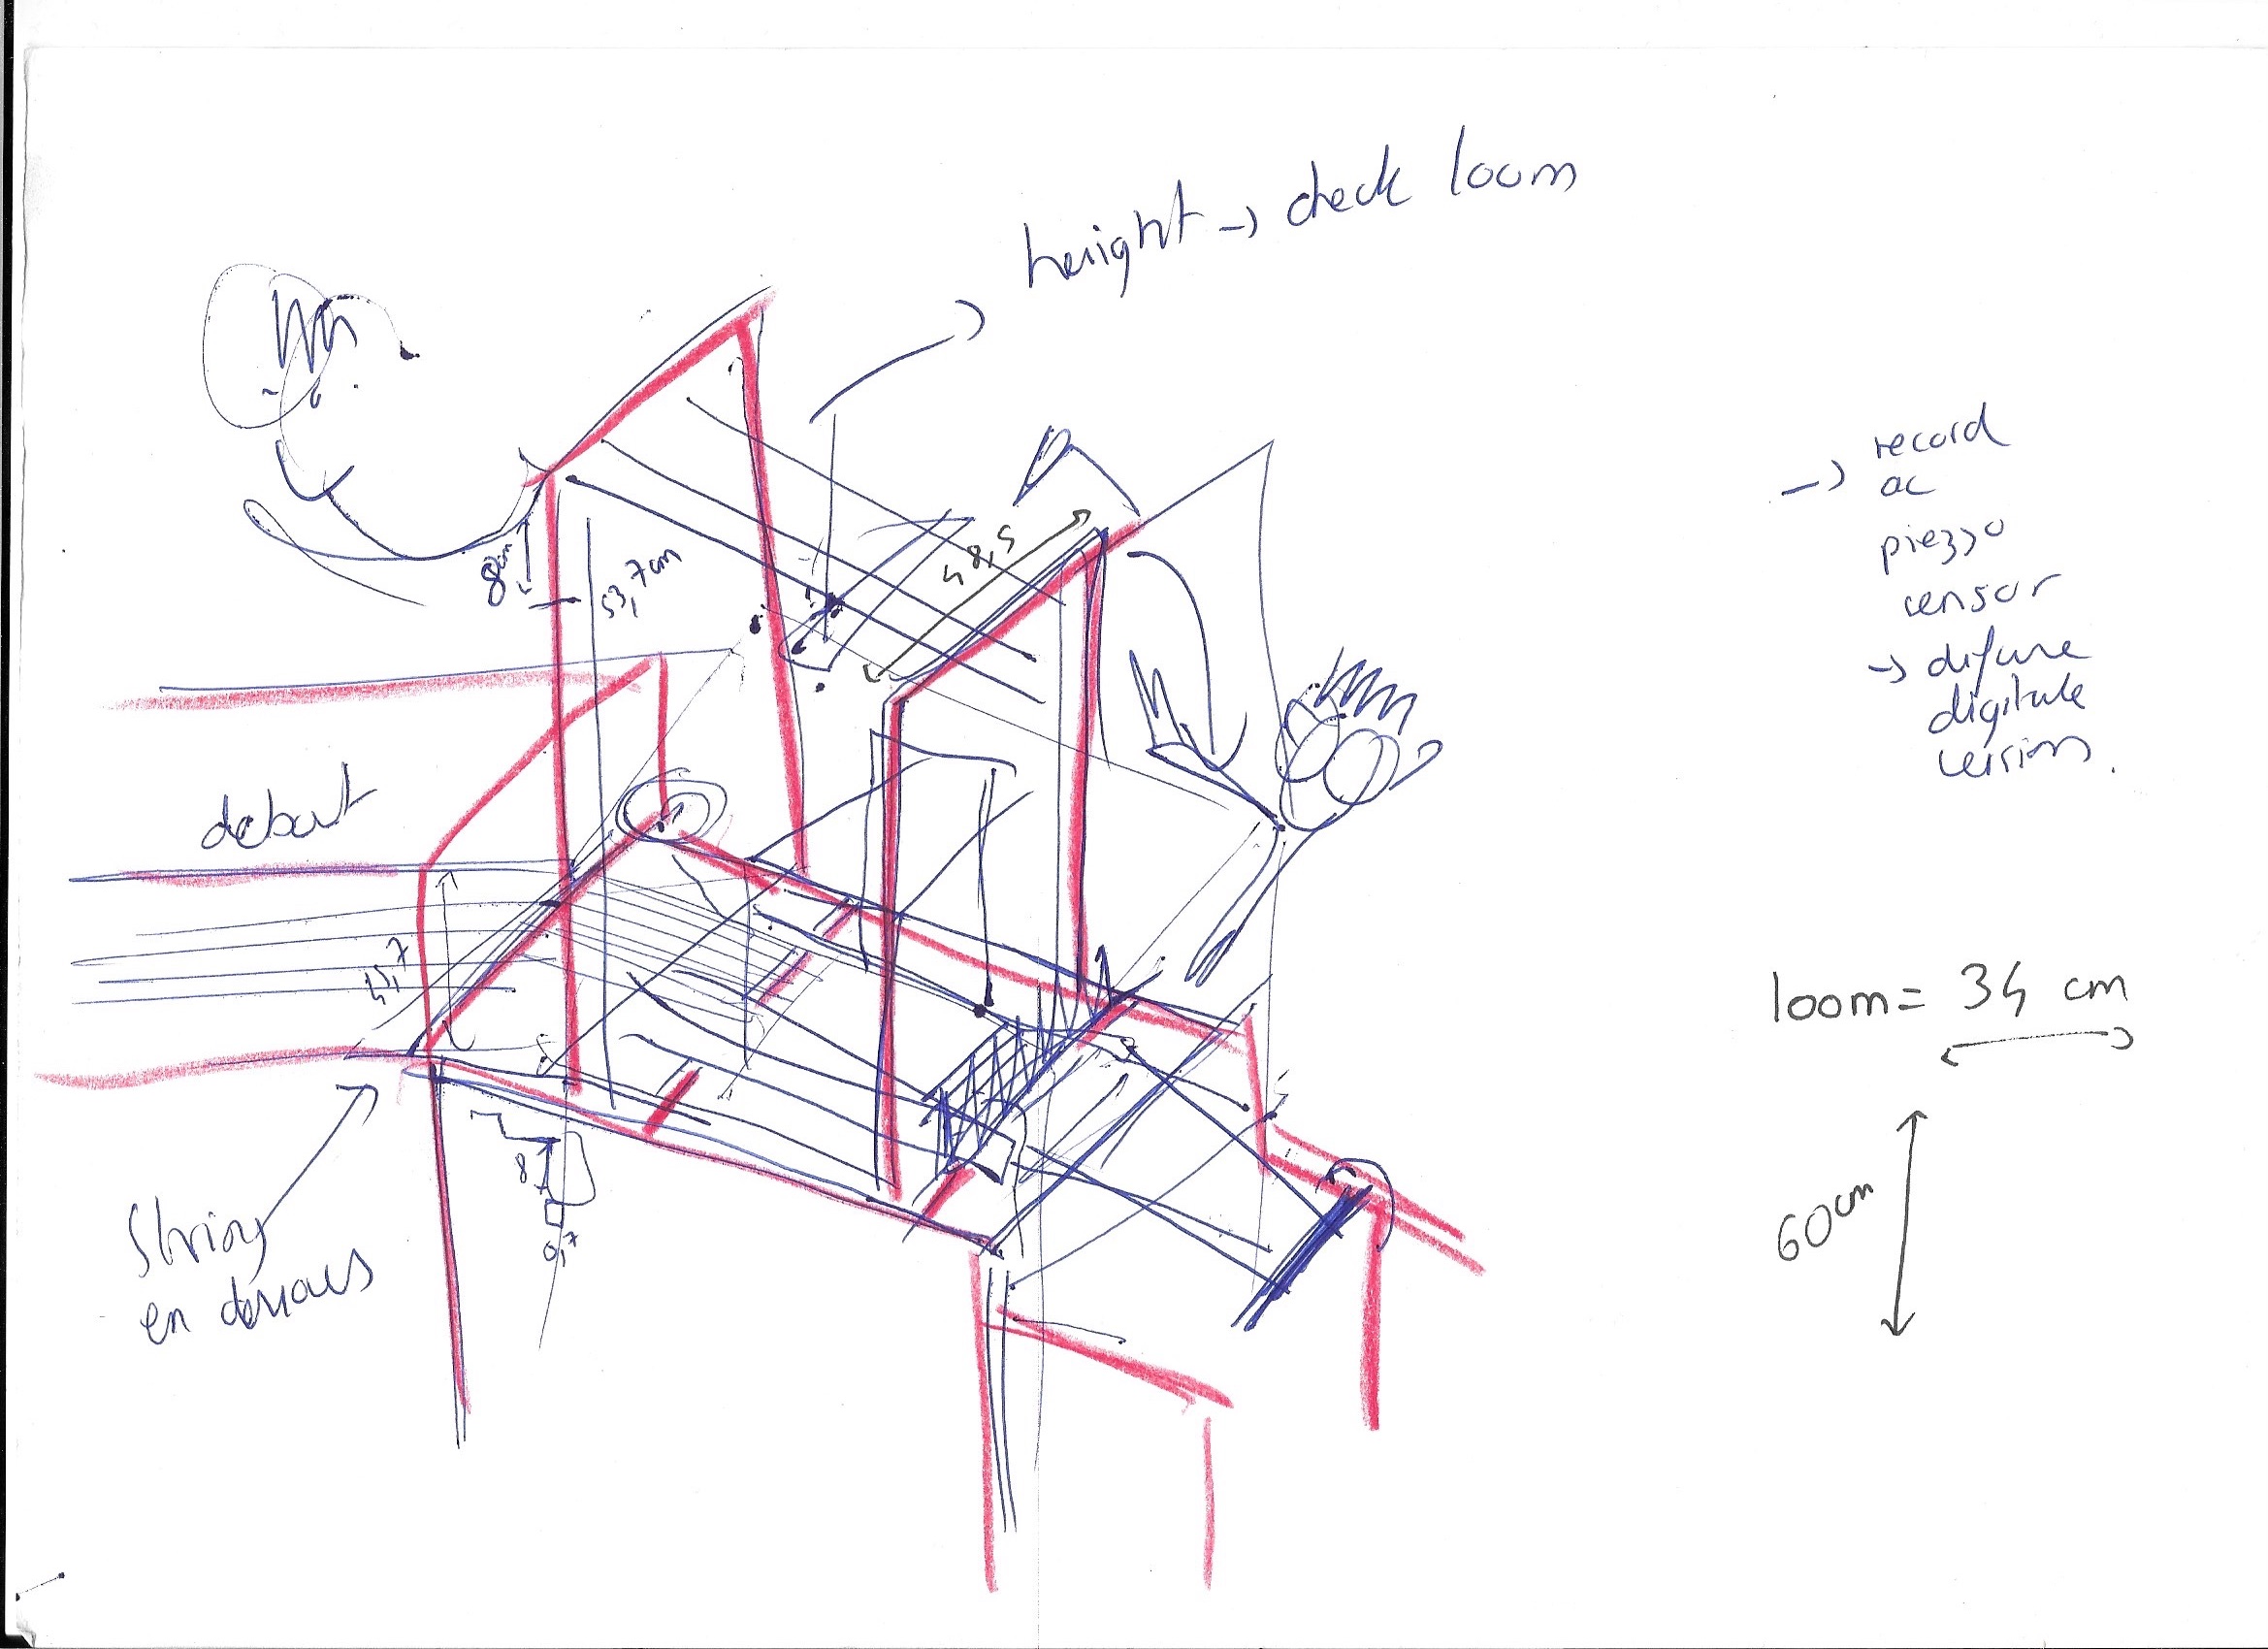 height → check loom
48,5
8cm
53,7cm
→ record
ac
piezzo
censor
→ difuse
digitale
version.
debout
loom = 34 cm
60cm
8,7
0,7
String
en dessous